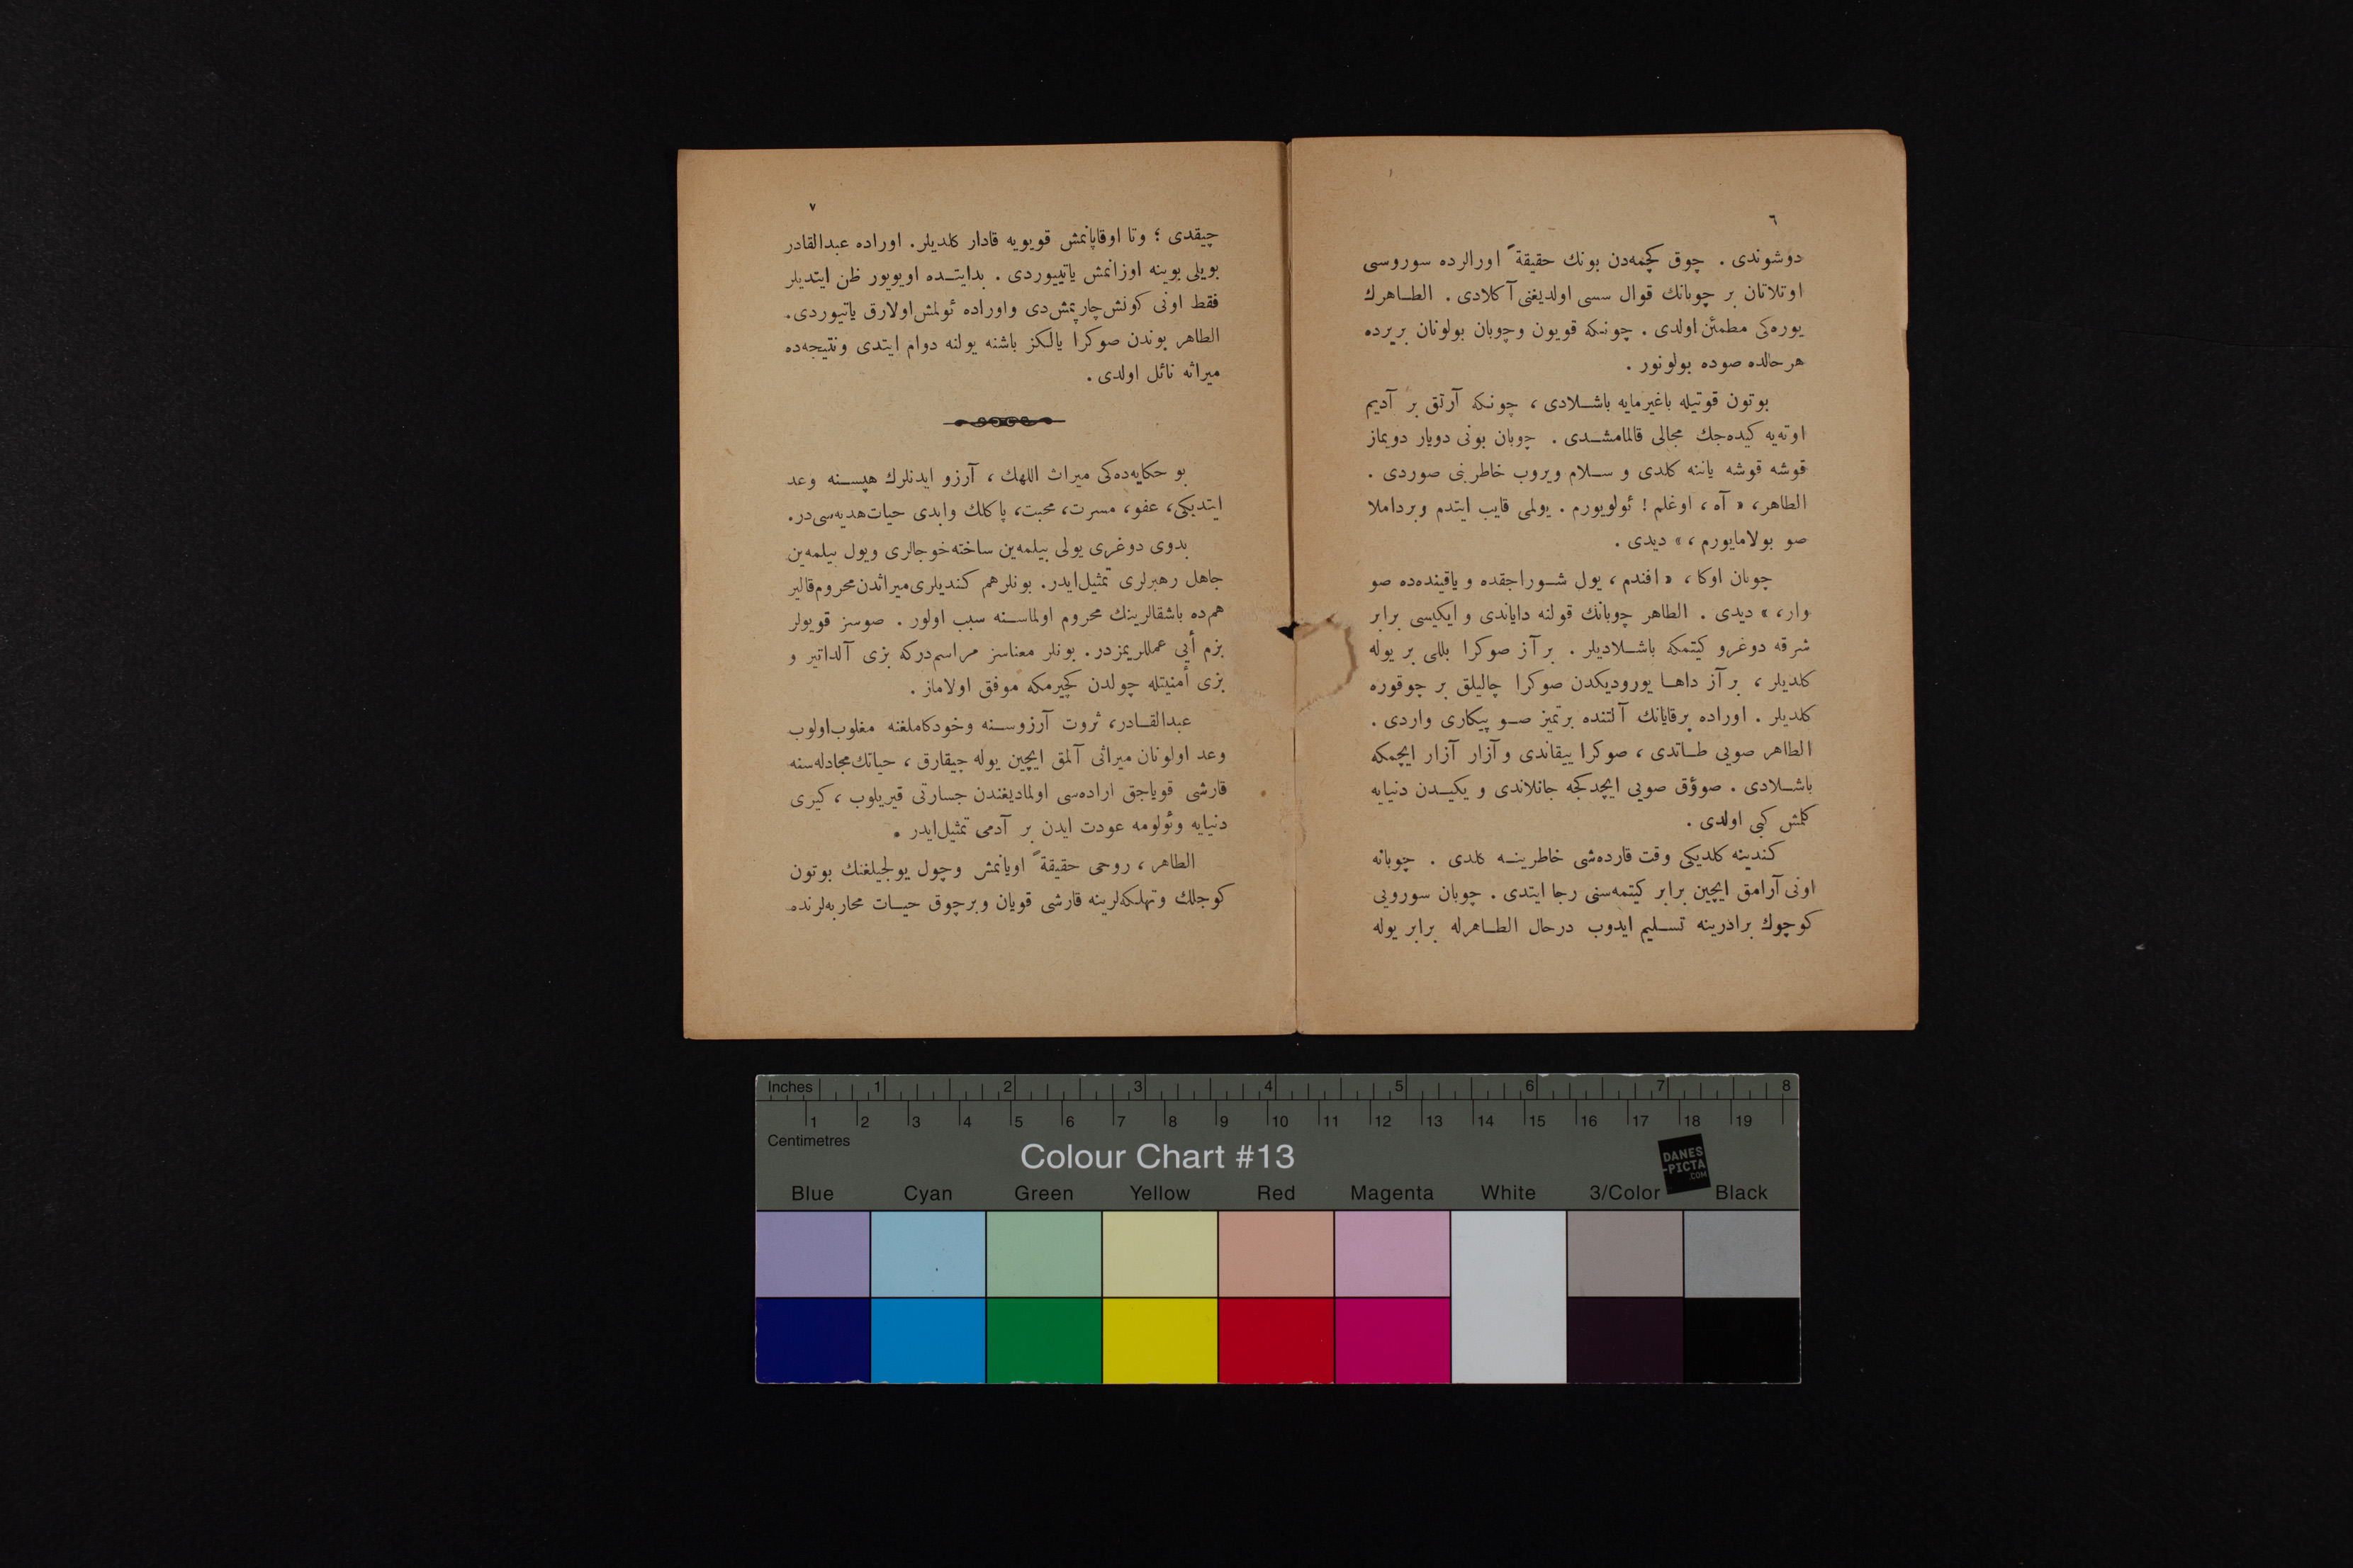 ٦
دوشوندی . چوق کچمه‌دن بونك حقیقةً اورالرده سوروسی
اوتلاتان بر چوبانك قوال سسی اولدیغنی آکلادی . الطاهرك
یوره‌کی مطمئن اولدی . چونکه قویون وچوبان بولونان بریرده
هرحالده صوده بولونور .
بوتون قوتیله باغیرمایه باشلادی ، چونکه آرتق بر آدیم
اوته‌یه کیده‌جك مجالی قالمامشدی . چوبان بونی دویار دویماز
قوشه قوشه یاننه کلدی و سلام ویروب خاطرینی صوردی .
الطاهر، « آه ، اوغلم ! ئولویورم . یولمی قایب ایتدم وبرداملا
صو بولامایورم ، » دیدی .
چوبان اوکا ، « افندم ، یول شوراجقده و یاقینده‌ده صو
وار، » دیدی . الطاهر چوبانك قولنه دایاندی و ایکیسی برابر
شرقه دوغرو کیتمکه باشلادیلر . بر آز صوکرا بللی بر یوله
کلدیلر ، بر آز داها یورودیکدن صوکرا چالیلق بر جوقوره
کلدیلر . اوراده برقایانك آلتنده برتمیز صو پیکاری واردی .
الطاهر صویی طاتدی ، صوکرا ییقاندی و آزار آزار ایچمکه
باشلادی . صوؤق صویی ایچدکجه جانلاندی و یکیدن دنیایه
کلمش کبی اولدی .
کندینه کلدیکی وقت قارده‌شی خاطرینه کلدی . چوبانه
اونی آرامق ایچین برابر کیتمه‌سنی رجا ایتدی . چوبان سورویی
کوچوك برادرینه تسلیم ایدوب درحال الطاهرله برابر یوله
٧
چیقدی ؛ وتا اوقاپانمش قویویه قادار کلدیلر. اوراده عبدالقادر
بویلی بوینه اوزانمش یاتییوردی . بدایتده اویویور ظن ایتدیلر
فقط اونی کونش چارپمش‌دی واوراده ئولمش اولارق یاتییوردی.
الطاهر بوندن صوکرا یالکز باشنه یولنه دوام ایتدی ونتیجه‌ده
میراثه نائل اولدی .
بو حکایه‌ده‌کی میراث اللهك ، آرزو ایدنلرك هپسنه وعد
ایتدیکی، عفو، مسرت، محبت، پاکلك وابدی حیات هدیه‌سی‌در.
بدوی دوغری یولی بیلمه‌ین ساخته خوجالری ویول بیلمه‌ین
جاهل رهبرلری تمثیل‌ایدر. بونلرهم کندیلری میراثدن محروم قالیر
هم‌ده باشقالرینك محروم اولماسنه سبب اولور . صوسز قویولر
بزم أیی عمللریمزدر. بونلر معناسز مراسم‌درکه بزی آلداتیر و
بزی أمنیتله چولدن کچیرمکه موفق اولاماز .
عبدالقادر، ثروت آرزوسنه وخودکاملغنه مغلوب‌اولوب
وعد اولونان میراثی آلمق ایچین یوله جیقارق ، حیاتك‌مجادله‌سنه
قارشی قویاجق اراده‌سی اولمادیغندن جسارتی قیریلوب ، کیری
دنیایه وئولومه عودت ایدن بر آدمی تمثیل‌ایدر .
الطاهر ، روحی حقیقةً اویانمش وچول یولجیلغنك بوتون
کوجلك وتهلکه‌لرینه قارشی قویان وبرچوق حیات محاربه‌لرنده
Inches 1 2 3 4 5 6 7 8
1 2 3 4 5 6 7 8 9 10 11 12 13 14 15 16 17 18 19
Centimetres
Colour Chart #13
DANES
-PICTA
.COM
Blue Cyan Green Yellow Red Magenta White 3/Color Black